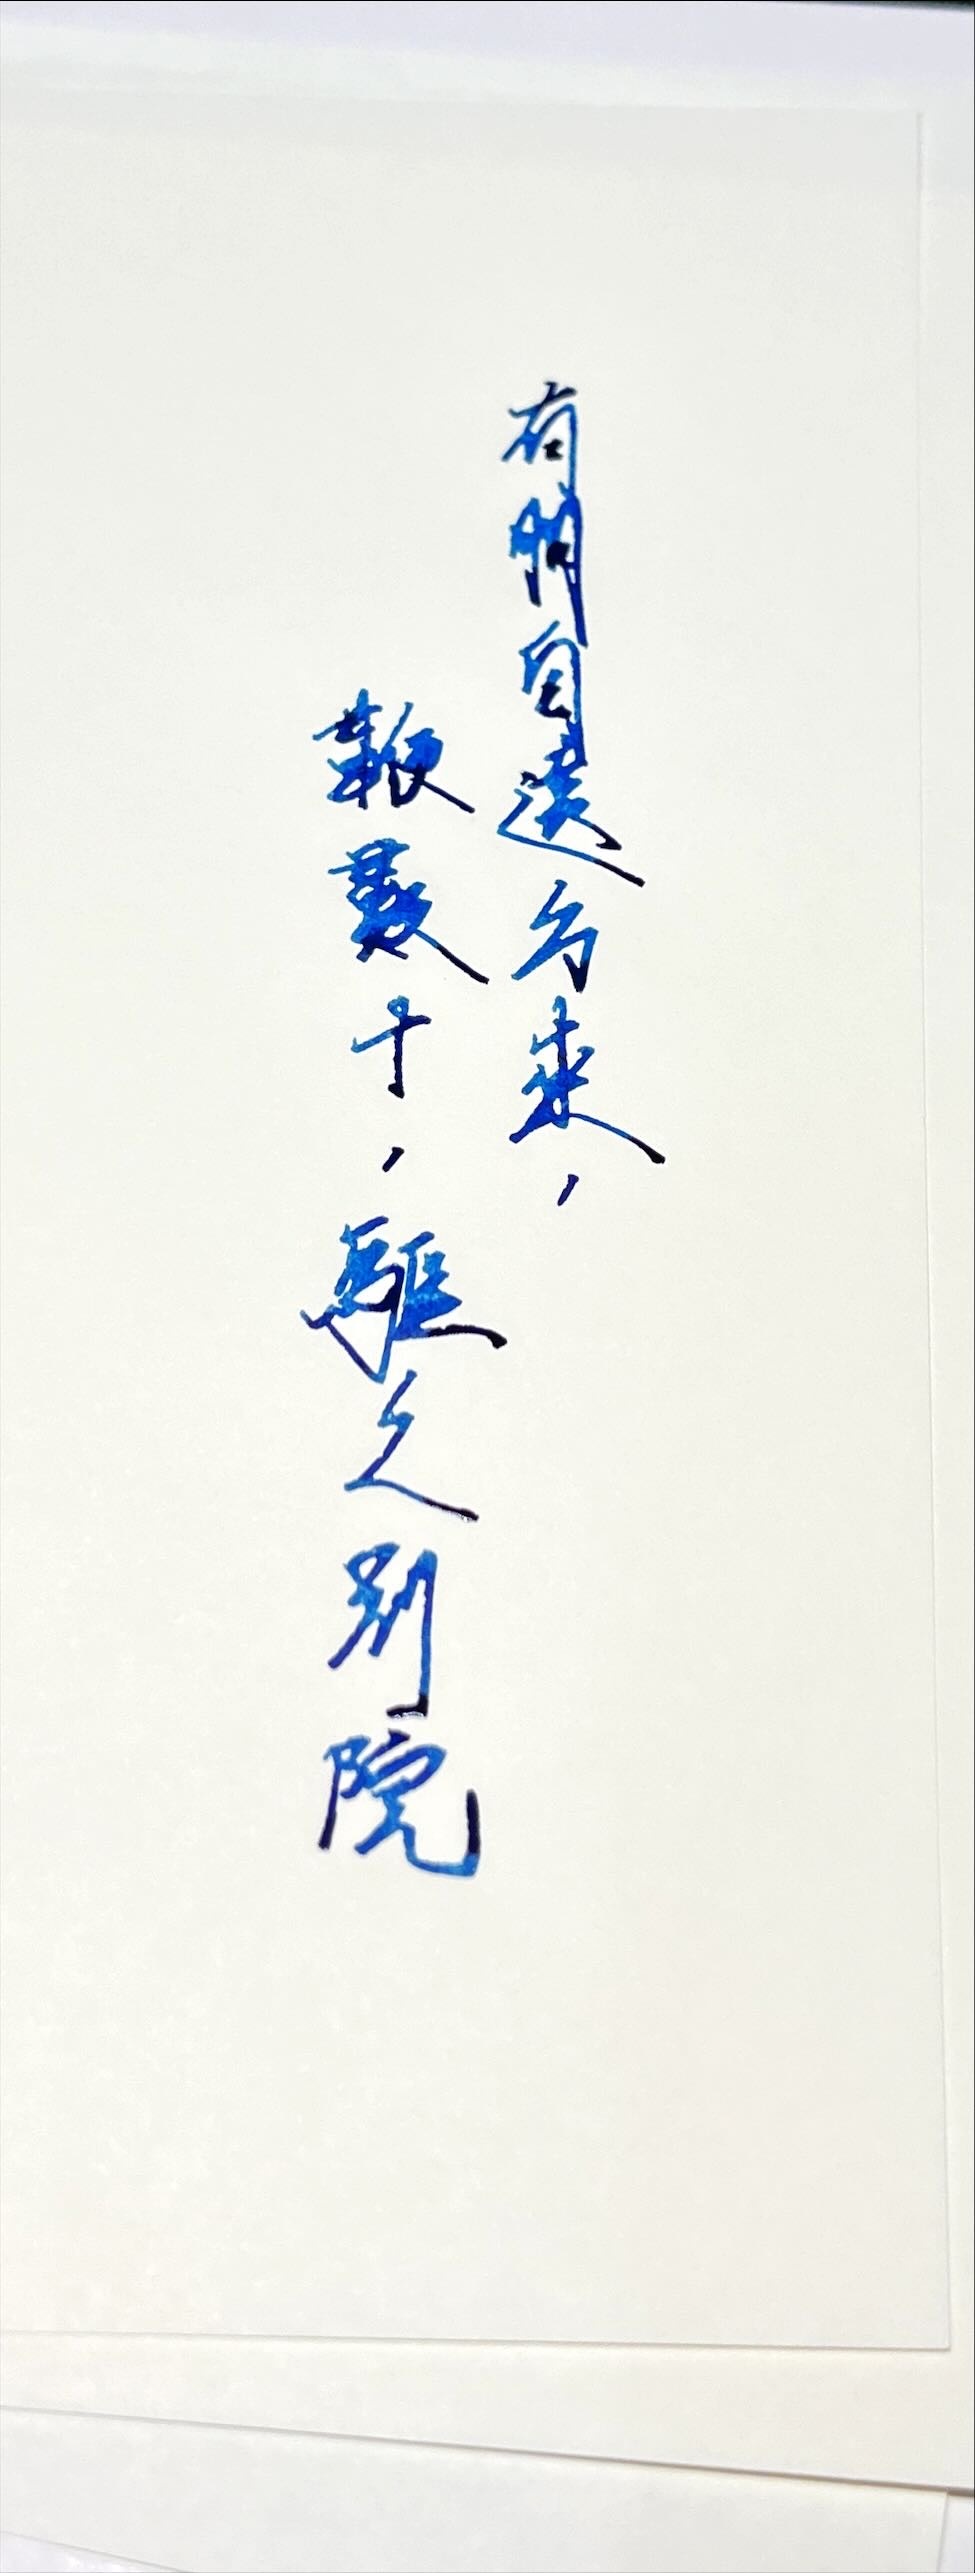 有朋自遠方來，
鞭數十，驅之別院